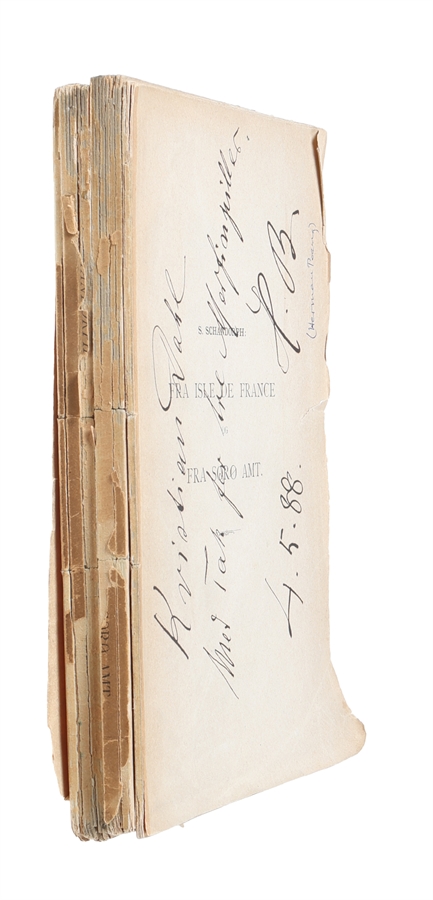 S. SCHANDORPH.
FRA ISLE DE FRANCE
OG
FRA SORØ AMT.
Kristian Dahl
med Tak for tre Morfinpiller.
H. B.
(Herman Bang)
4. 5. 88.
ORØ AMT